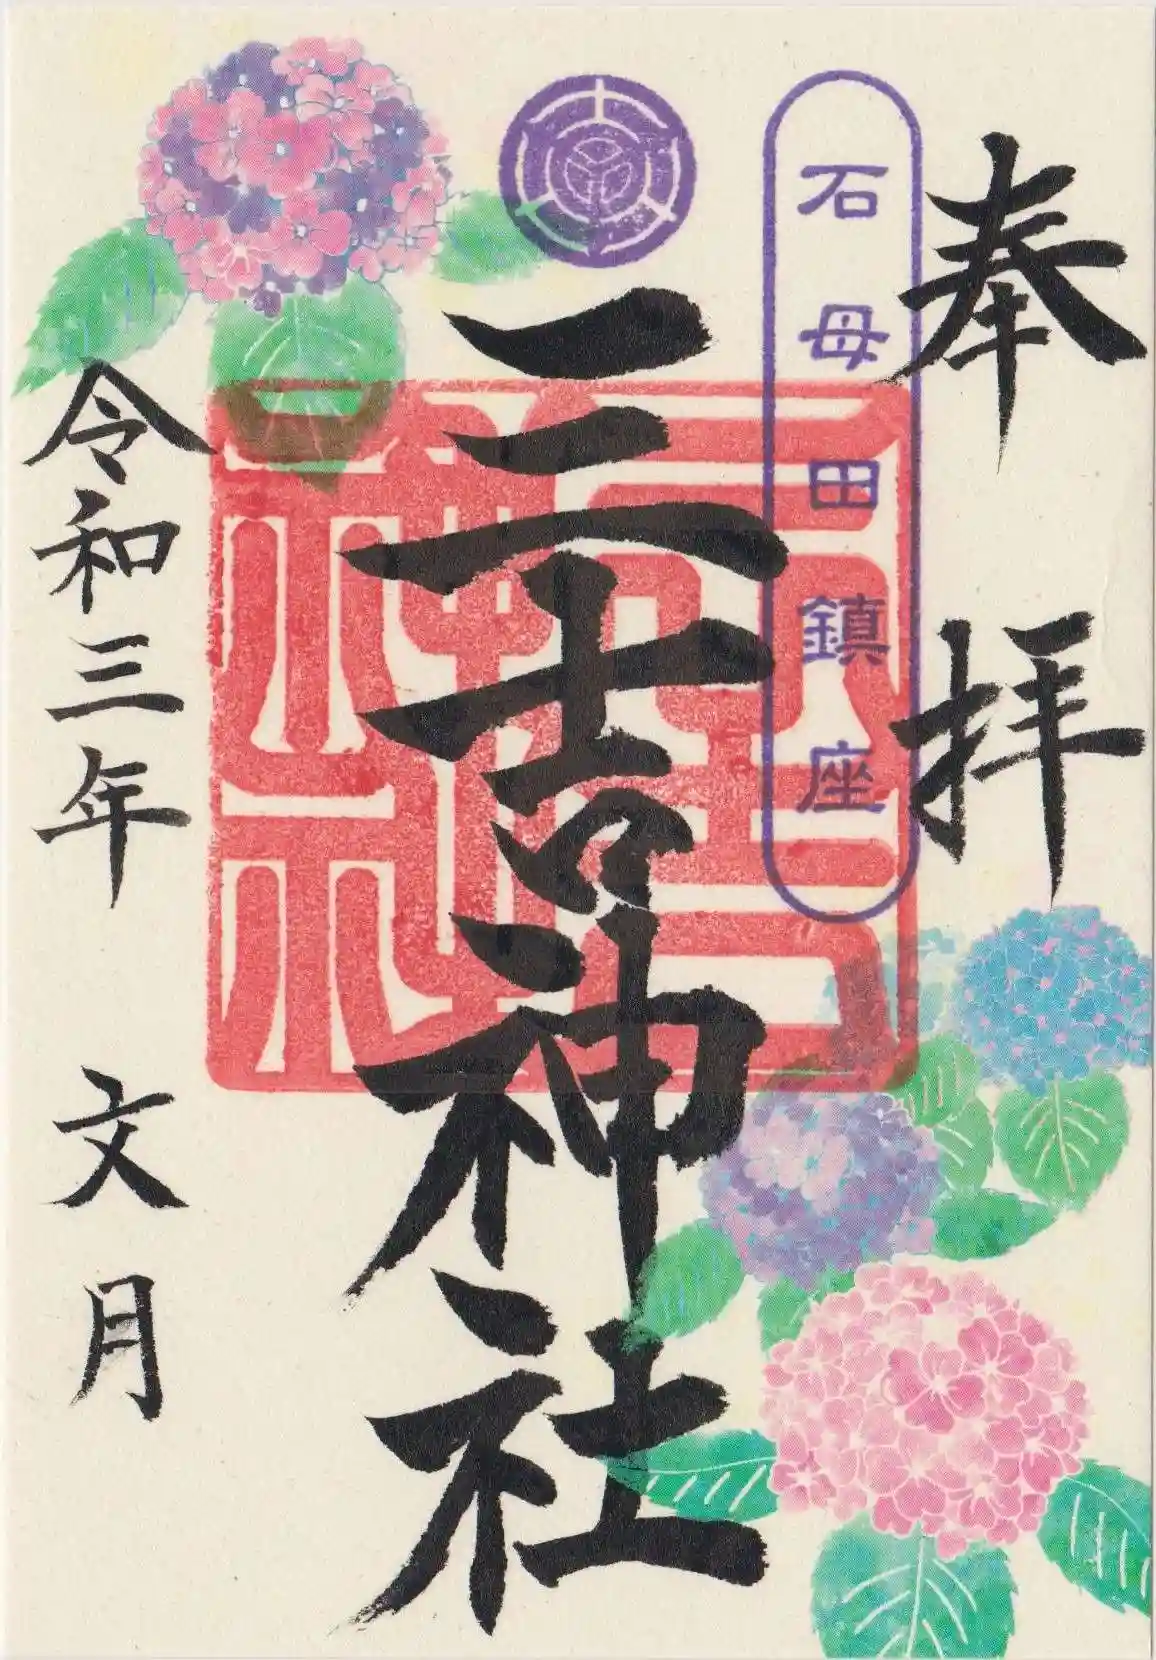 奉拝
石母田鎮座
三吉神社
令和三年 文月